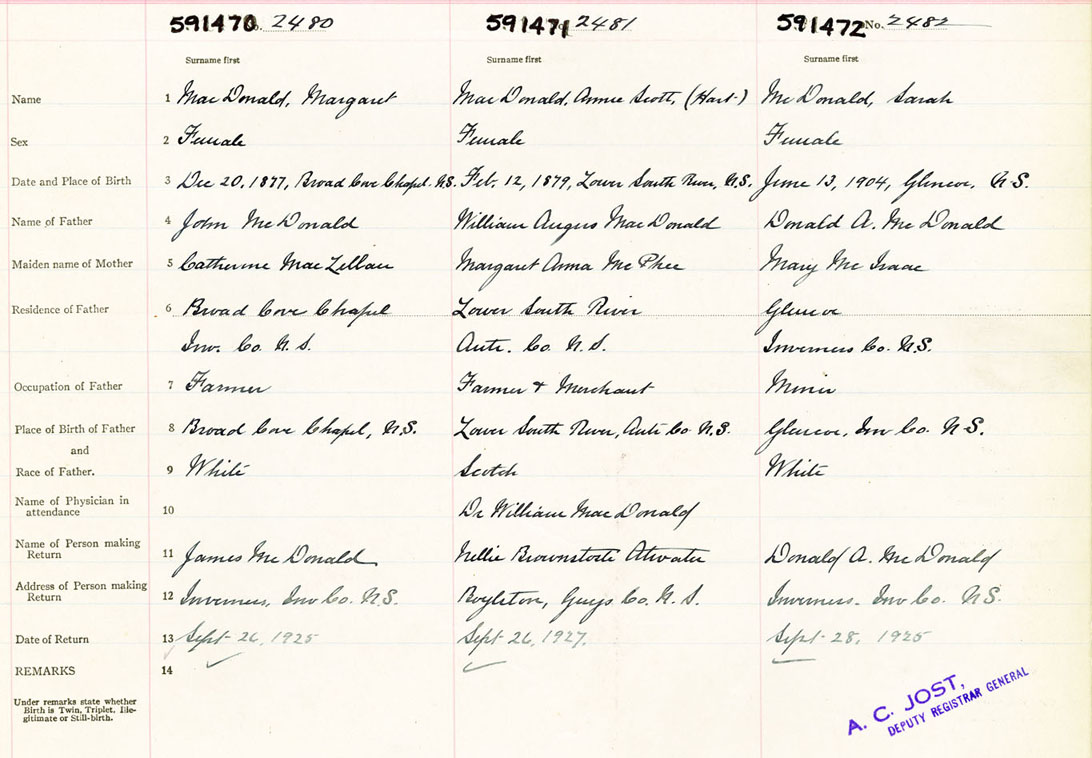 591470 No. 2480 591471 2481 591472 No. 2482
Surname first Surname first Surname first
Name 1 MacDonald, Margaret MacDonald, Annie Scott, (Hart) McDonald, Sarah
Sex 2 Female Female Female
Date and Place of Birth 3 Dec 20, 1877, Broad Cove Chapel. N.S. Feb. 12, 1879, Lower South River, N.S. June 13, 1904, Glencoe, N.S.
Name of Father 4 John McDonald William Angus MacDonald Donald A. McDonald
Maiden name of Mother 5 Catherine MacLellan Margaret Anna McPhee Mary McIsaac
Residence of Father 6 Broad Cove Chapel Lower South River Glencoe
Inv. Co. N.S. Anti. Co. N.S. Inverness Co. N.S.
Occupation of Father 7 Farmer Farmer & Merchant Miner
Place of Birth of Father 8 Broad Cove Chapel, N.S. Lower South River, Anti Co. N.S. Glencoe, Inv Co. N.S.
and
Race of Father. 9 White Scotch White
Name of Physician in
attendance 10 Dr William MacDonald
Name of Person making
Return 11 James McDonald Nellie Atwater Donald A. McDonald
Address of Person making
Return 12 Inverness, Inv Co. N.S. Boylston, Guys. Co. N.S. Inverness. Inv Co. N.S.
Date of Return 13 Sept 26, 1925 Sept 26, 1927. Sept 28, 1925
REMARKS 14
Under remarks state whether
Birth is Twin, Triplet, Ille-
gitimate or Still-birth.
A. C. JOST,
DEPUTY REGISTRAR GENERAL